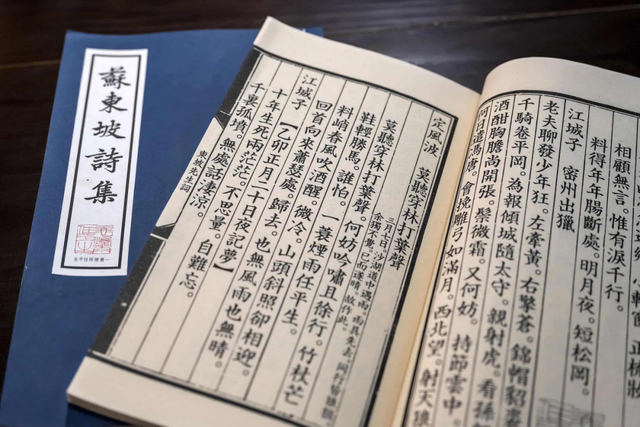 蘇東坡詩集
相顧無言。惟有淚千行。
料得年年腸斷處。明月夜。短松岡。
江城子 密州出獵
老夫聊發少年狂。左牽黃。右擎蒼。錦帽貂裘
千騎卷平岡。為報傾城隨太守。親射虎。看孫
酒酣胸膽尚開張。鬢微霜。又何妨。持節雲中。
何日遣馮唐。會挽雕弓如滿月。西北望。射天狼
定風波 莫聽穿林打葉聲
三月七日。沙湖道中遇雨。雨具先去。同行皆狼狽。
余獨不覺。已而遂晴。故作此。
莫聽穿林打葉聲。何妨吟嘯且徐行。竹杖芒
鞋輕勝馬。誰怕。一蓑煙雨任平生。
料峭春風吹酒醒。微冷。山頭斜照卻相迎。
回首向來蕭瑟處。歸去。也無風雨也無晴。
江城子 【乙卯正月二十日夜記夢】
十年生死兩茫茫。不思量。自難忘。
千裏孤墳。無處話淒涼。
東坡先生詞